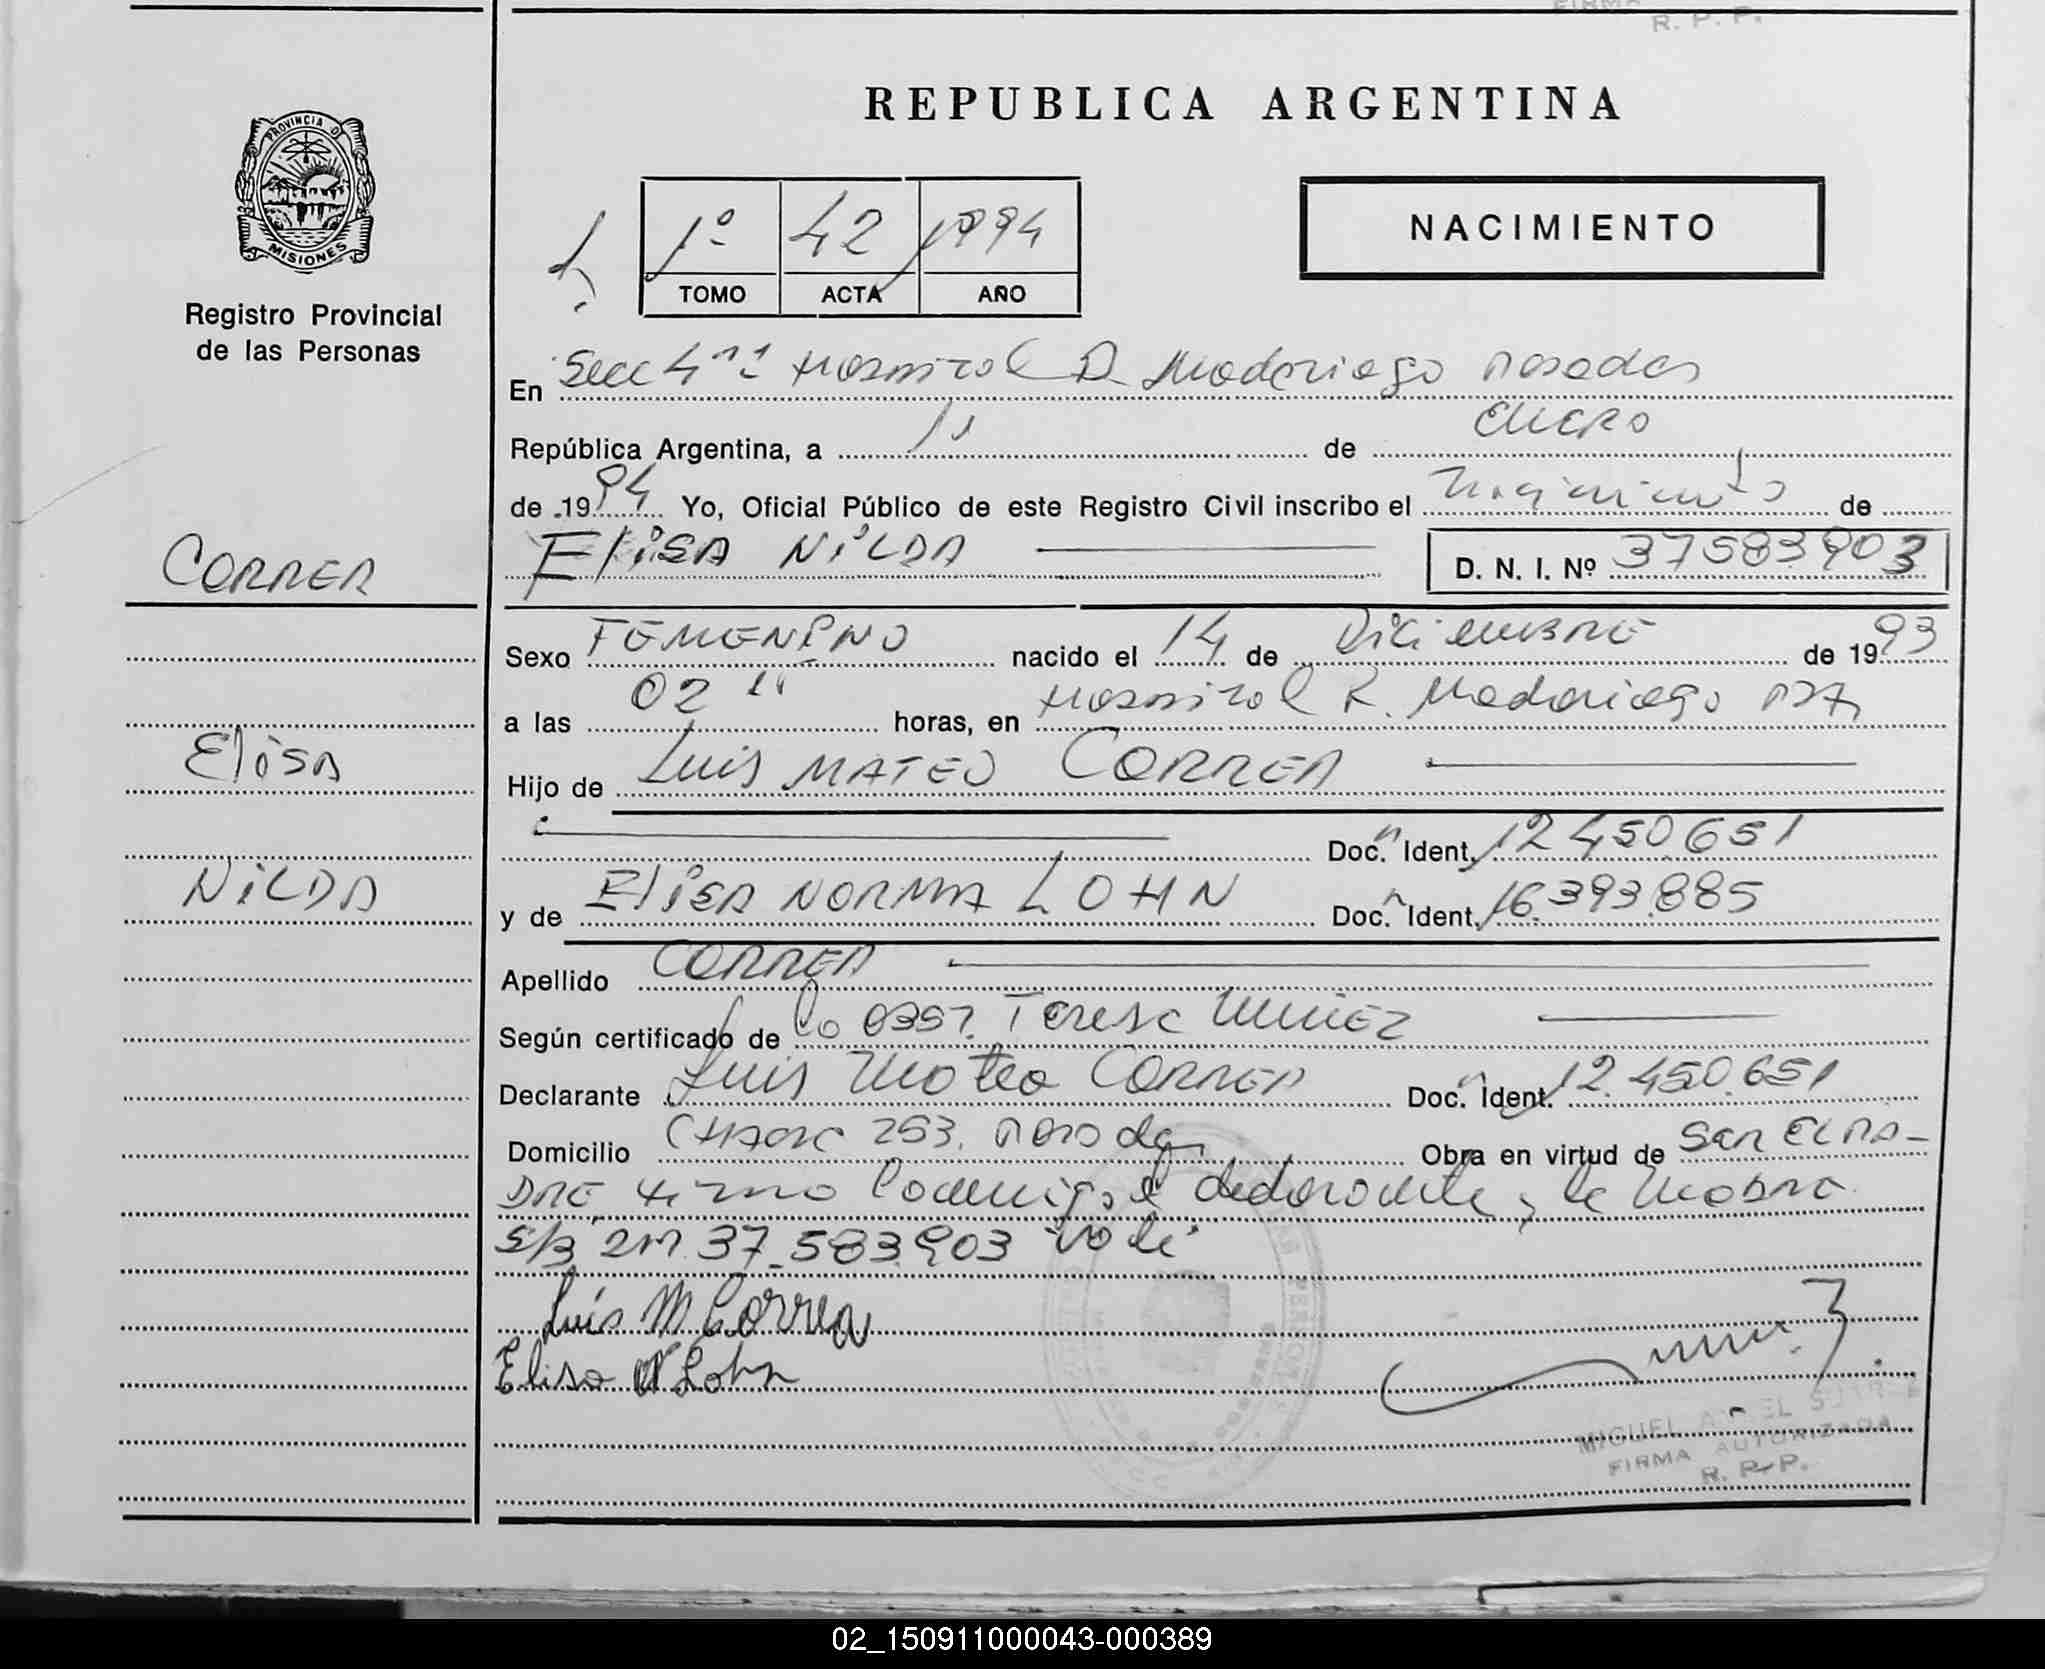 FIRMA
R. P. P.
REPUBLICA ARGENTINA
PROVINCIA D
MISIONES
Registro Provincial
de las Personas
1º 42 1994
TOMO ACTA AÑO
NACIMIENTO
En Secc 4ta Hospital R. Madariaga Posadas
República Argentina, a 11 de Enero
de 1994 Yo, Oficial Público de este Registro Civil inscribo el Nacimiento de
ELiSA NiLDA D. N. I. Nº 37583903
CORREA
Sexo FEMENiNO nacido el 14 de DiCiEMBRE de 1993
a las 02 horas, en Hospital R. Madariaga
Elisa
Hijo de Luis MATEO CORREA
Doc. Ident. 12.450.651
NiLDA
y de ELiSA NORMA LOHN Doc. Ident. 16.393.885
Apellido CORREA
Según certificado de la Teresa
Declarante Luis Mateo CORREA Doc. Ident. 12.450.651
Domicilio 253. Posadas Obra en virtud de Ser EL PA-
DRE, conmigo el declarante y la Madre
37.583.903 Vale
Luis M Correa
Elisa N Lohn
MIGUEL ANGEL
FIRMA AUTORIZADA
R. P. P.
02_150911000043-000389